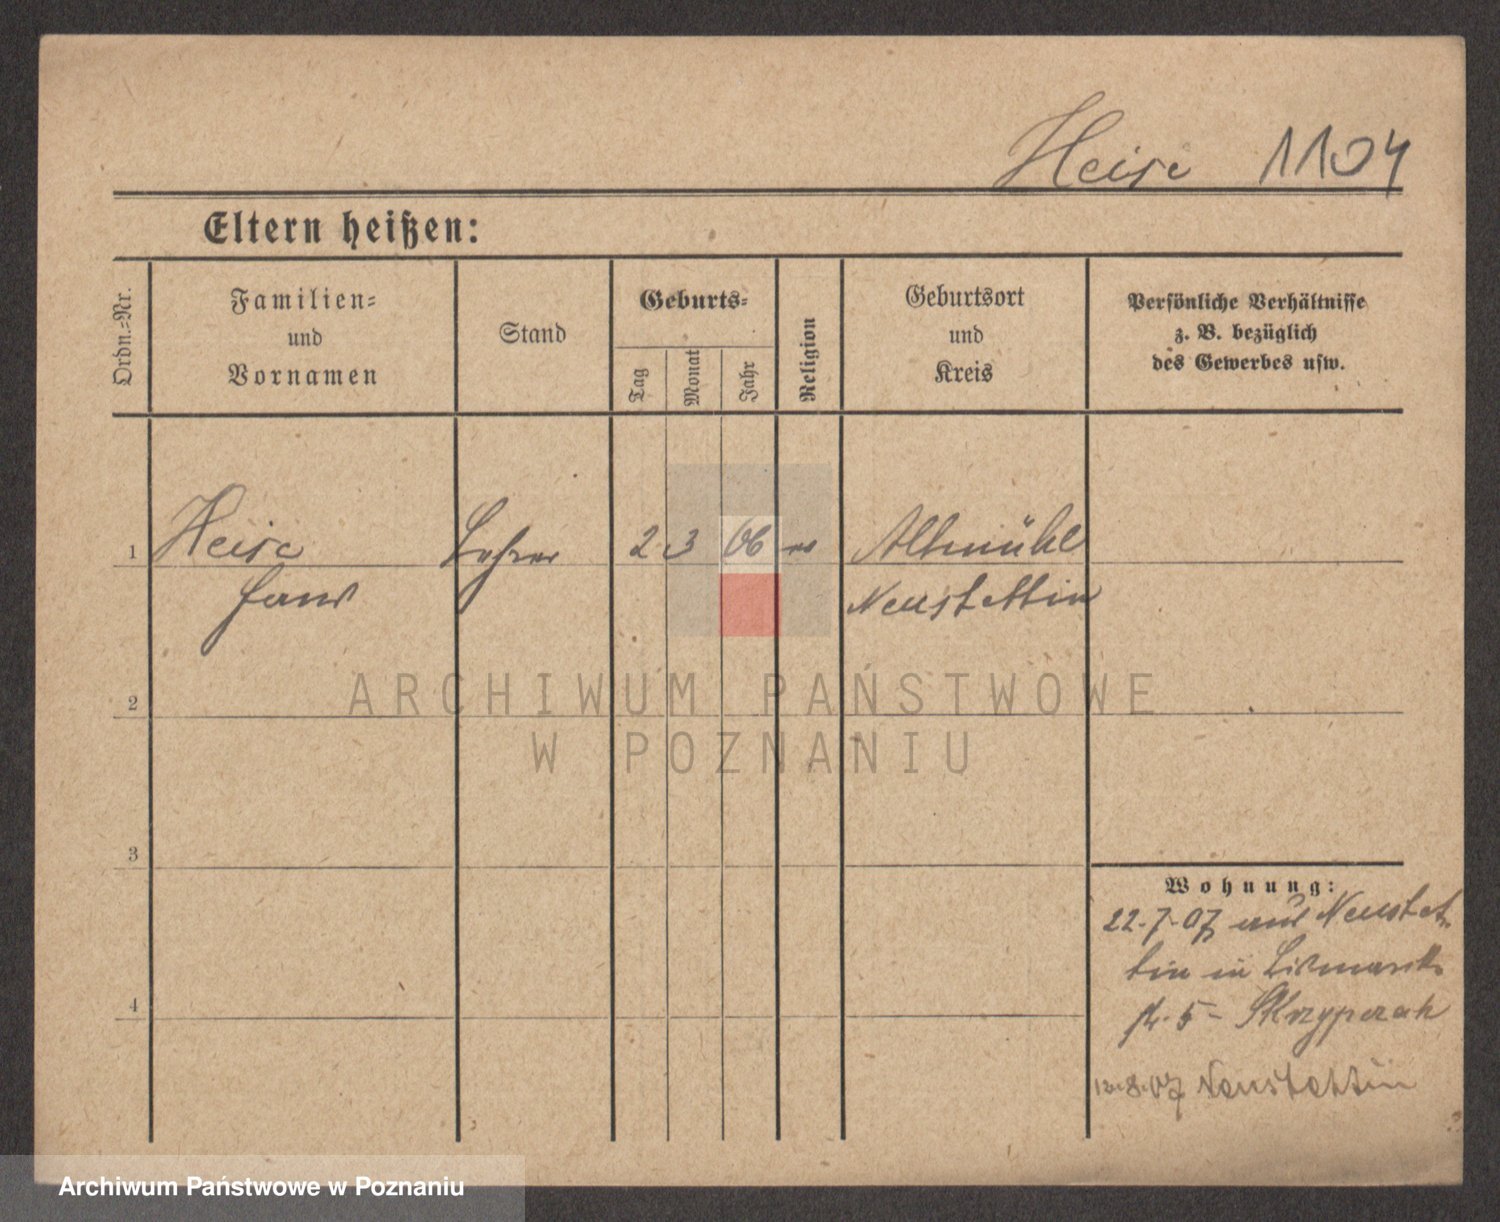 Heise 1104
Eltern heißen:
Ordn.=Nr.
Familien=
und
Vornamen
Stand
Geburts=
Tag
Monat
Jahr
Religion
Geburtsort
und
Kreis
Persönliche Verhältnisse
z. B. bezüglich
des Gewerbes usw.
1 Heise Lehrer 2 3 06 ev Altmühl
Hans Neustettin
ARCHIWUM PAŃSTWOWE
2
W POZNANIU
3
Wohnung:
22.7.07 aus Neustet-
tin in Bismarck
str. 5 - Skrzypczak
4
8.07 Neustettin
Archiwum Państwowe w Poznaniu